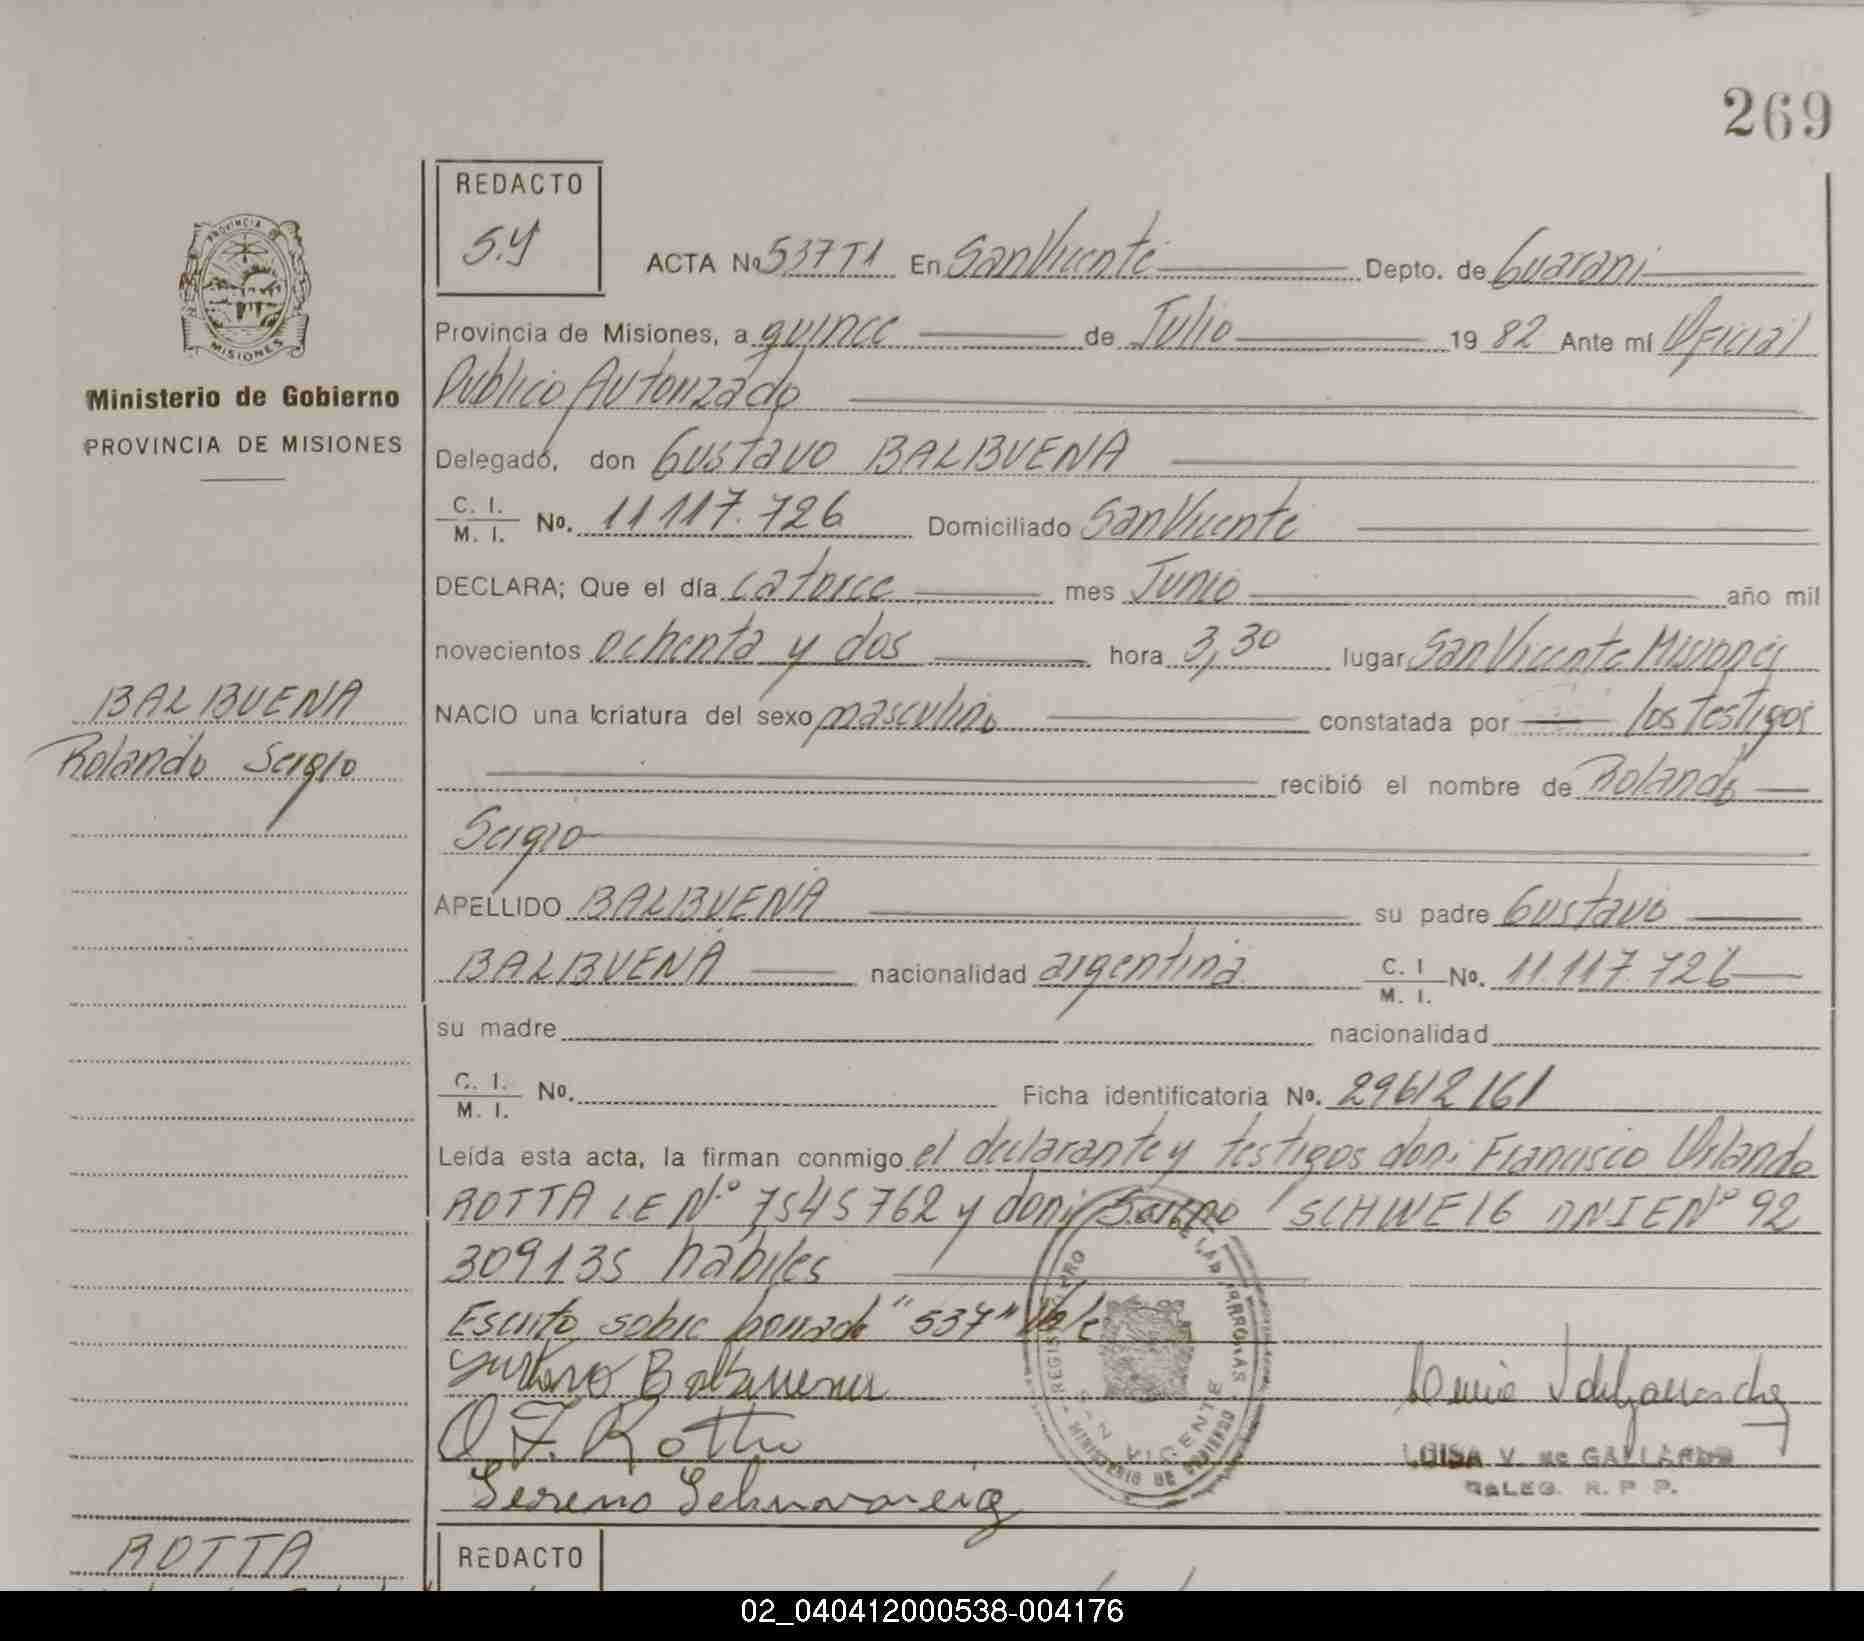 269
REDACTO
S.Y
ACTA No 537 T1 En San Vicente Depto. de Guarani
PROVINCIA DE
MISIONES
Ministerio de Gobierno
PROVINCIA DE MISIONES
Provincia de Misiones, a quince de Julio 19 82 Ante mí Oficial
Publico Autorizado
Delegado, don Gustavo BALBUENA
C. I. / M. I. No. 11 117.726 Domiciliado San Vicente
DECLARA; Que el día catorce mes Junio año mil
novecientos ochenta y dos hora 3,30 lugar San Vicente Misiones
BALBUENA
Rolando Sergio
NACIO una criatura del sexo masculino constatada por los testigos
recibió el nombre de Rolando
Sergio
APELLIDO BALBUENA su padre Gustavo
BALBUENA nacionalidad argentina C. I / M. I. No. 11.117.726
su madre nacionalidad
C. I. / M. I. No. Ficha identificatoria No. 29612161
Leída esta acta, la firman conmigo el declarante y testigos don: Francisco Orlando
ROTTA LE Nº 7545762 y don: SCHWEIG DNIE Nº 92
309135 habiles
Escrito sobre borrado "537" Vale
Gustavo Balbuena
O F. Rotta
Sereno
REGISTRO DE LAS PERSONAS
SAN VICENTE
MINISTERIO DE GOBIERNO
LUISA V. de GALLARDO
DALEG. R. P P.
ROTTA
REDACTO
02_040412000538-004176